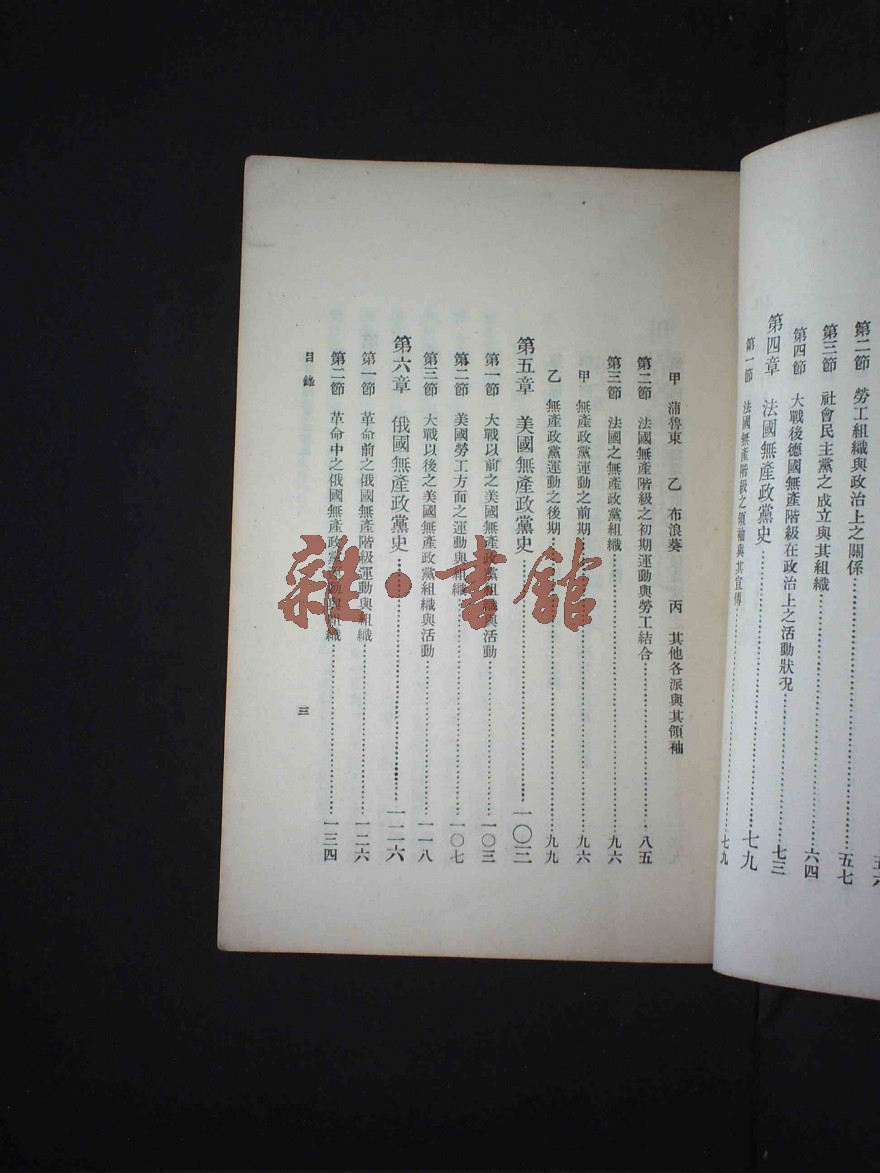 第二節　勞工組織與政治上之關係
第三節　社會民主黨之成立與其組織……五七
第四節　大戰後德國無產階級在政治上之活動狀況……六四
第四章　法國無產政黨史……七三
第一節　法國無產階級之領袖與其宣傳……七九
甲　蒲魯東　乙　布浪葵　丙　其他各派與其領袖
第二節　法國無產階級之初期運動與勞工結合……八五
第三節　法國之無產政黨組織……九六
甲　無產政黨運動之前期……九六
乙　無產政黨運動之後期……九九
第五章　美國無產政黨史……一〇三
第一節　大戰以前之美國無產政黨組織與活動……一〇三
第二節　美國勞工方面之運動與組織……一〇七
第三節　大戰以後之美國無產政黨組織與活動……一一八
第六章　俄國無產政黨史……一二六
第一節　革命前之俄國無產階級運動與組織……一二六
第二節　革命中之俄國無產政黨運動與組織……一三四
目錄　三
雜·書館